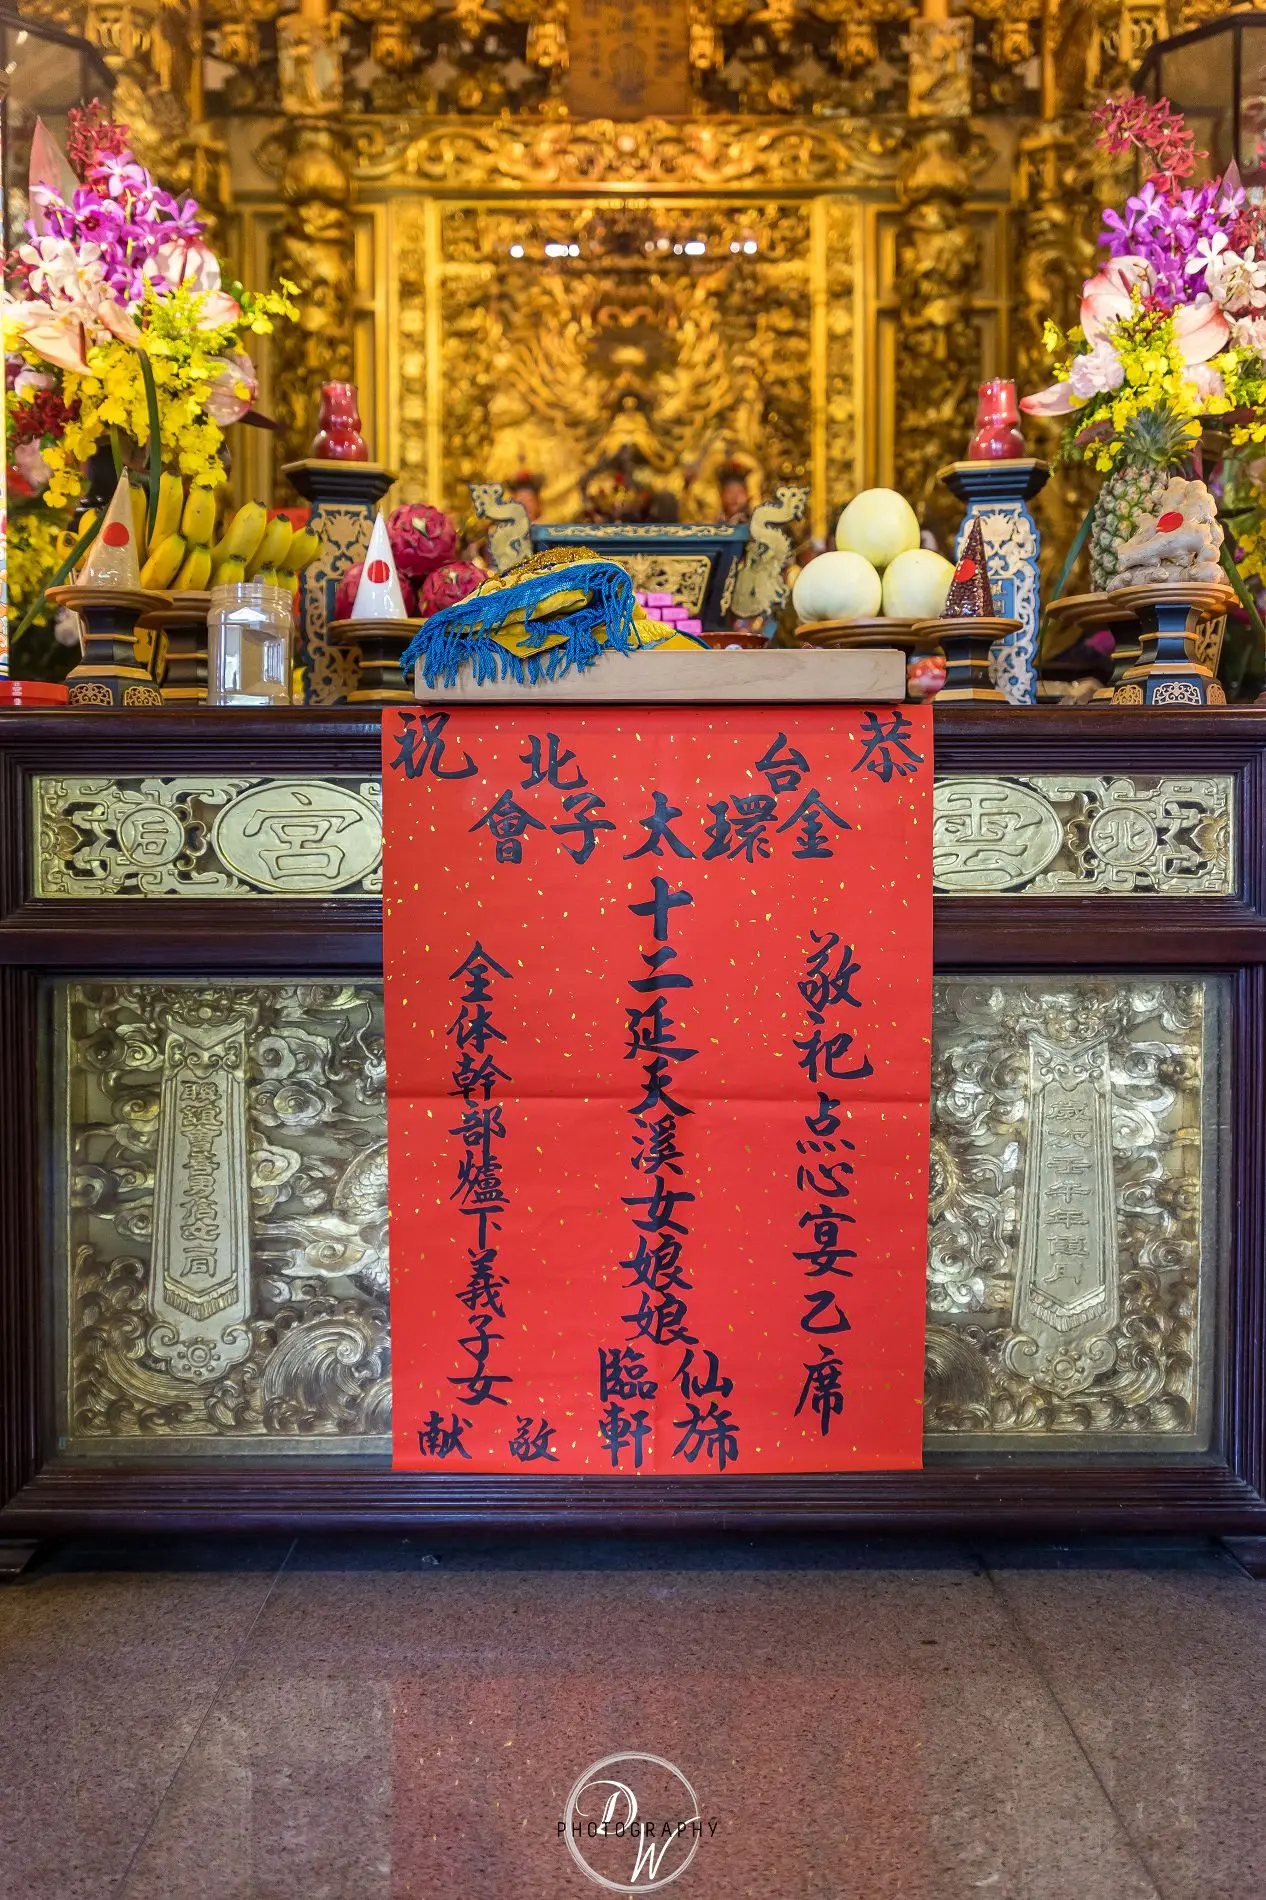 恭祝
台北
金環太子會
敬祀点心宴乙席
十二延天溪女娘娘
仙旆臨軒
全体幹部爐下義子女
敬献
北
雲
宮
后
歲次壬午年
聯誼會善男信女一同
DW
PHOTOGRAPHY